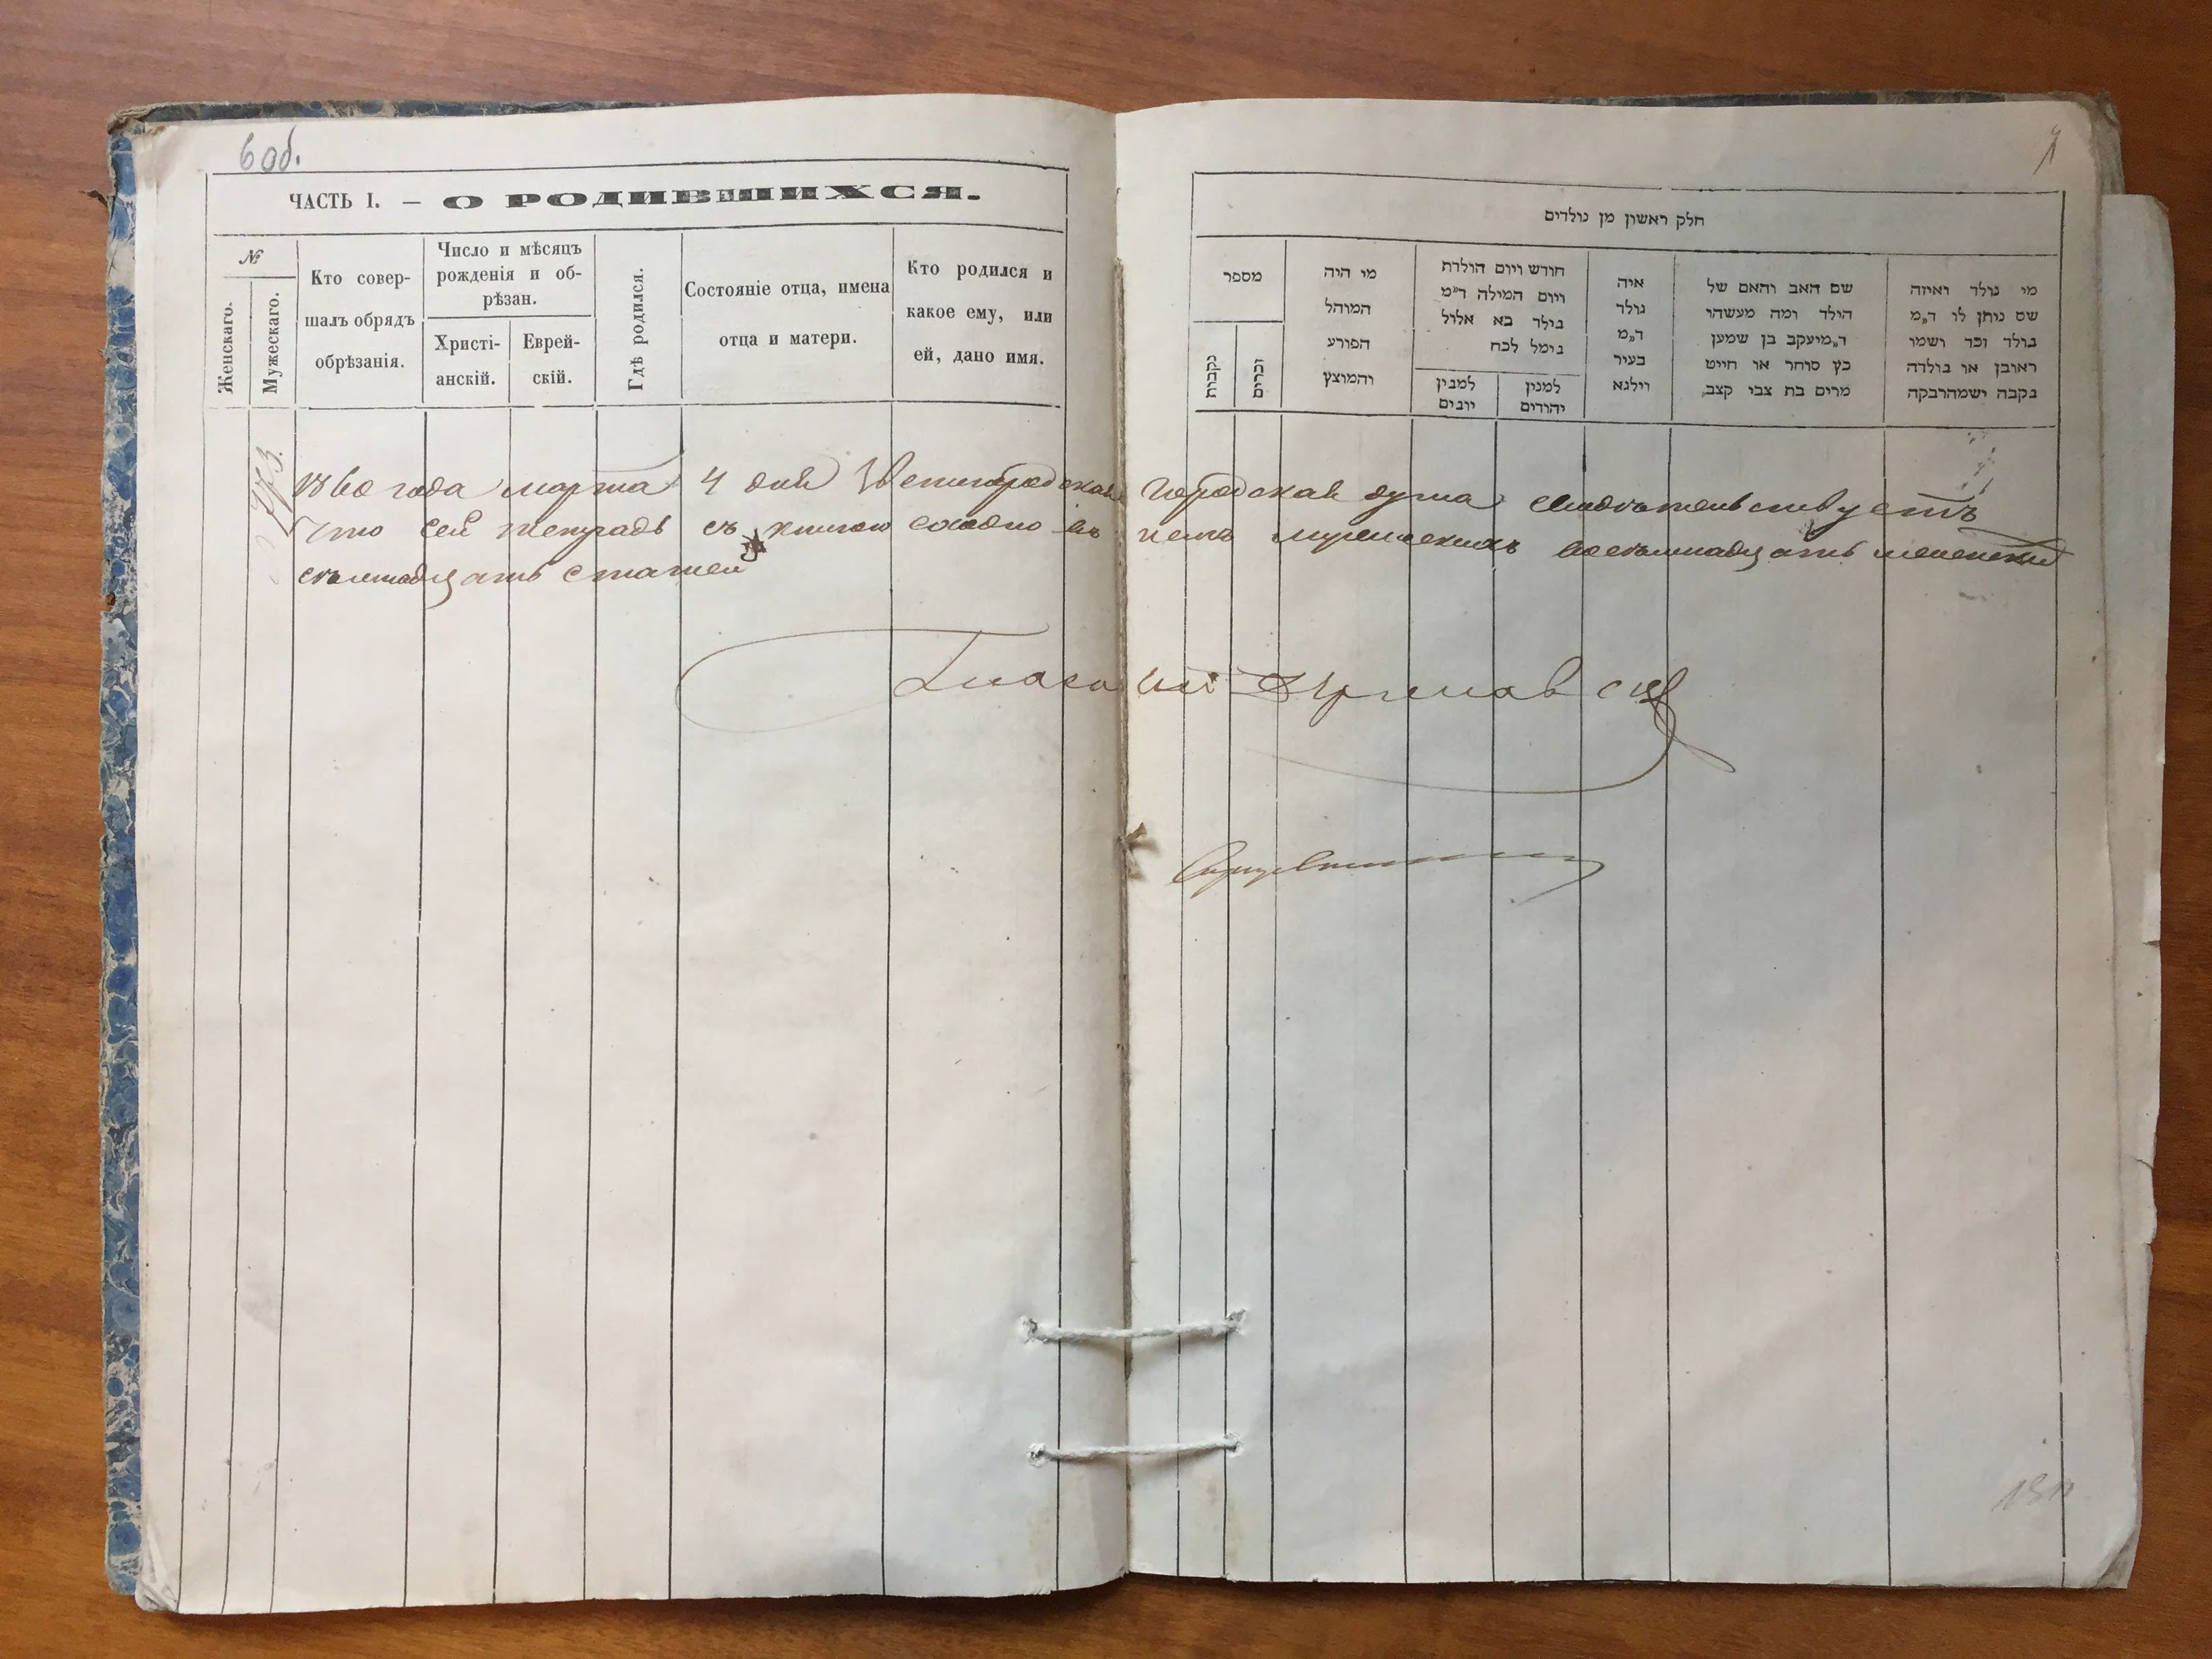 6 об.
ЧАСТЬ I. — О РОДИВШИХСЯ.
№
Женскаго.
Мужескаго.
Кто совер-
шалъ обрядъ
обрѣзанія.
Число и мѣсяцъ
рожденія и об-
рѣзан.
Христі-
анскій.
Еврей-
скій.
Гдѣ родился.
Состояніе отца, имена
отца и матери.
Кто родился и
какое ему, или
ей, дано имя.
חלק ראשון מן נולדים
מספר
נקבות
זכרים
מי היה
המוהל
הפורע
והמוצץ
חודש ויום הולדת
ויום המילה ד״מ
נולד בא אלול
נימל לכח
למנין
יונים
למנין
יהודים
איה
נולד
ד״מ
בעיר
ווילנא
שם האב והאם של
הילד ומה מעשהו
ד״מ יעקב בן שמעון
כץ סוחר או חייט
מרים בת צבי קצב,
מי נולד ואיזה
שם ניתן לו ד״מ
נולד זכר ושמו
ראובן או נולדה
נקבה ישמה רבקה
7
1860 года марта 4 дня Звенигородская Городская дума свидетельствуетъ
Что сей тетрадь съ книгою сходно въ чемъ мужескихъ восемнадцать женский
семнадцать статей
Гласный